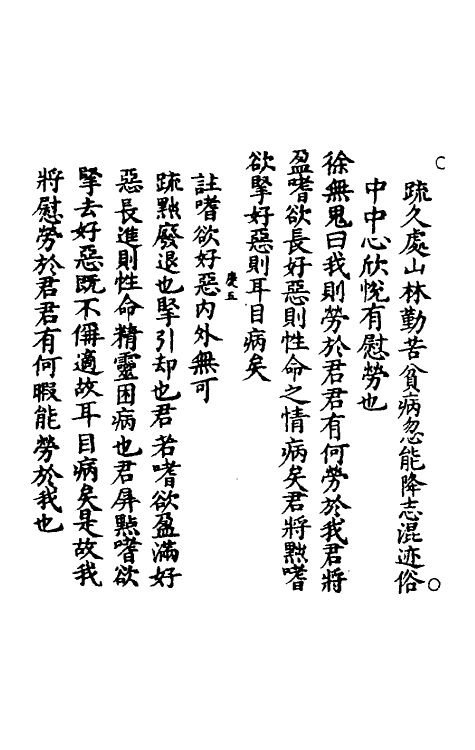 疏久處山林勤苦貧病忽能降志混迹俗
中中心欣悅有慰勞也
徐無鬼曰我則勞於君君有何勞於我君將
盈嗜欲長好惡則性命之情病矣君將黜嗜
欲掔好惡則耳目病矣
慶五
註嗜欲好惡內外無可
疏黜廢退也掔引却也君若嗜欲盈滿好
惡長進則性命精靈困病也君屏黜嗜欲
掔去好惡既不稱適故耳目病矣是故我
將慰勞於君君有何暇能勞於我也